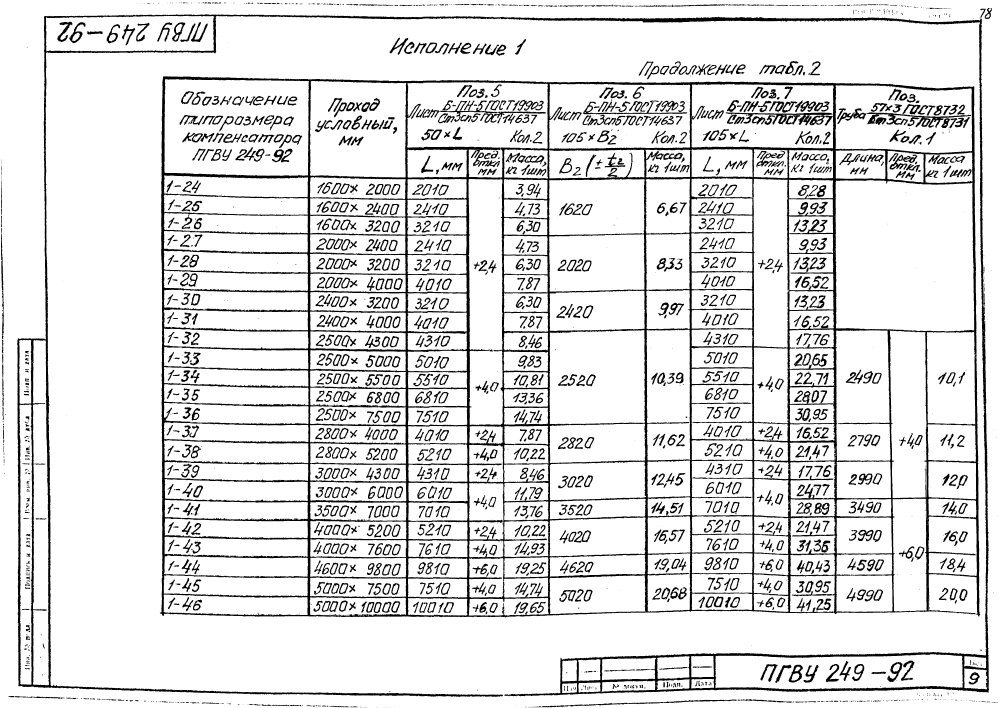 78
ПГВУ 249-92
Исполнение 1
Продолжение табл. 2
Обозначение типоразмера компенсатора ПГВУ 249-92 | Проход условный, мм | Поз. 5 Лист Б-ПН-5 ГОСТ 19903 / Ст3сп5 ГОСТ 14637 50×L Кол. 2 | Поз. 6 Лист Б-ПН-5 ГОСТ 19903 / Ст3сп5 ГОСТ 14637 105×B2 Кол. 2 | Поз. 7 Лист Б-ПН-5 ГОСТ 19903 / Ст3сп5 ГОСТ 14637 105×L Кол. 2 | Поз. Труба 57×3 ГОСТ 8732 / Вт3сп5 ГОСТ 8731 Кол. 1
L, мм | Пред. откл. мм | Масса, кг 1шт | B2 (± t2/2) | Масса, кг 1шт | L, мм | Пред. откл. мм | Масса, кг 1шт | Длина, мм | Пред. откл. мм | Масса кг 1шт
1-24 | 1600× 2000 | 2010 | 3,94 | 2010 | 8,28
1-25 | 1600× 2400 | 2410 | 4,73 | 1620 | 6,67 | 2410 | 9,93
1-26 | 1600× 3200 | 3210 | 6,30 | 3210 | 13,23
1-27 | 2000× 2400 | 2410 | 4,73 | 2410 | 9,93
1-28 | 2000× 3200 | 3210 | +2,4 | 6,30 | 2020 | 8,33 | 3210 | +2,4 | 13,23
1-29 | 2000× 4000 | 4010 | 7,87 | 4010 | 16,52
1-30 | 2400× 3200 | 3210 | 6,30 | 2420 | 9,97 | 3210 | 13,23
1-31 | 2400× 4000 | 4010 | 7,87 | 4010 | 16,52
1-32 | 2500× 4300 | 4310 | 8,46 | 4310 | 17,76
1-33 | 2500× 5000 | 5010 | 9,83 | 5010 | 20,65
1-34 | 2500× 5500 | 5510 | +4,0 | 10,81 | 2520 | 10,39 | 5510 | +4,0 | 22,71 | 2490 | 10,1
1-35 | 2500× 6800 | 6810 | 13,36 | 6810 | 28,07
1-36 | 2500× 7500 | 7510 | 14,74 | 7510 | 30,95
1-37 | 2800× 4000 | 4010 | +2,4 | 7,87 | 2820 | 11,62 | 4010 | +2,4 | 16,52 | 2790 | +4,0 | 11,2
1-38 | 2800× 5200 | 5210 | +4,0 | 10,22 | 5210 | +4,0 | 21,47
1-39 | 3000× 4300 | 4310 | +2,4 | 8,46 | 3020 | 12,45 | 4310 | +2,4 | 17,76 | 2990 | 12,0
1-40 | 3000× 6000 | 6010 | +4,0 | 11,79 | 6010 | +4,0 | 24,77
1-41 | 3500× 7000 | 7010 | 13,76 | 3520 | 14,51 | 7010 | 28,89 | 3490 | 14,0
1-42 | 4000× 5200 | 5210 | +2,4 | 10,22 | 4020 | 16,57 | 5210 | +2,4 | 21,47 | 3990 | 16,0
1-43 | 4000× 7600 | 7610 | +4,0 | 14,93 | 7610 | +4,0 | 31,36 | +6,0
1-44 | 4600× 9800 | 9810 | +6,0 | 19,25 | 4620 | 19,04 | 9810 | +6,0 | 40,43 | 4590 | 18,4
1-45 | 5000× 7500 | 7510 | +4,0 | 14,74 | 5020 | 20,68 | 7510 | +4,0 | 30,95 | 4990 | 20,0
1-46 | 5000× 10000 | 10010 | +6,0 | 19,65 | 10010 | +6,0 | 41,25
ПГВУ 249-92
9
№ докум. Подп. Дата